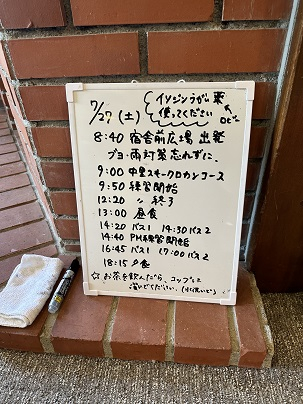 7/27(土)
イソジンうがい薬
使ってください
ロビー
8:40 宿舎前広場 出発
ブヨ・雨対策 忘れずに。
9:00 中里スキークロカンコース
9:50 練習開始
12:20 〃 終了
13:00 昼食
14:20 バス1 14:30 バス2
14:40 PM練習開始
16:45 バス1 17:00 バス2
18:15 夕食
☆ お茶を飲んだら、コップを
洗いでください。